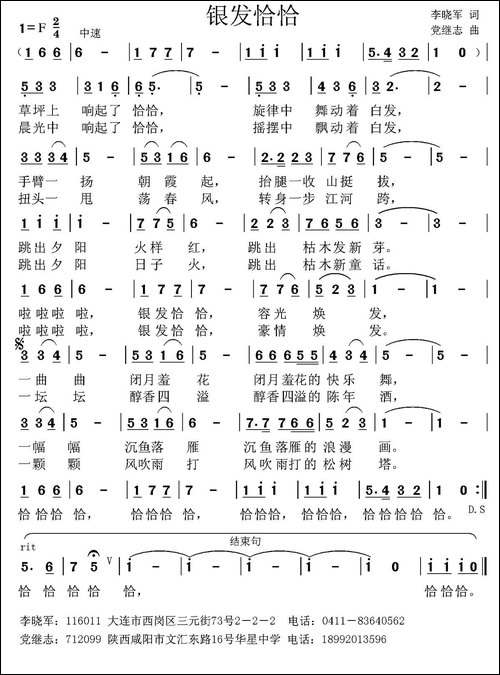 银发恰恰
李晓军 词
党继志 曲
1=F 2/4 中速
( 1 6 6 | 6 - | 1 7 7 | 7 - | 1 i i | i i i | 5.4 3 2 | 1 0 )
草坪上 响起了 恰恰， 旋律中 舞动着 白发，
晨光中 响起了 恰恰， 摇摆中 飘动着 白发，
3 3 3 4 | 5 - | 5 3 1 6 | 6 - | 2.2 2 3 | 7 7 6 | 5 - | 5 -
手臂一 扬 朝霞 起， 抬腿一收 山挺 拔，
扭头一 甩 荡春 风， 转身一步 江河 跨，
跳出夕 阳 火样 红， 跳出 枯木发新 芽。
跳出夕 阳 日子 火， 跳出 枯木新童 话。
1 6 6 | 6 -
啦啦啦 啦， 银发恰 恰， 容光 焕 发，
啦啦啦 啦， 银发恰 恰， 豪情 焕 发。
3 3 4 | 5 - | 5 3 1 6 | 6 - | 6 6 6 6 5 5
一曲 曲 闭月羞 花 闭月羞花的 快乐 舞，
一坛 坛 醇香四 溢 醇香四溢的 陈年 酒，
一幅 幅 沉鱼落 雁 沉鱼落雁的 浪漫 画。
一颗 颗 风吹雨 打 风吹雨打的 松树 塔。
1 6 6 | 6 - | 1 7 7 | 7 - | 1 i i | 1 i i | 5.4 3 2 | 1 0
恰恰恰 恰， 恰恰恰 恰， 恰恰恰 恰恰恰 恰恰恰恰 恰。 D.S
rit 结束句
5. 6 | 7 5 V | i - | i - | i - | i - | i i | i i 0
恰 恰 恰 恰 恰， 恰恰恰。
李晓军：116011 大连市西岗区三元街73号2－2－2 电话：0411-83640562
党继志：712099 陕西咸阳市文汇东路16号华星中学 电话：18992013596